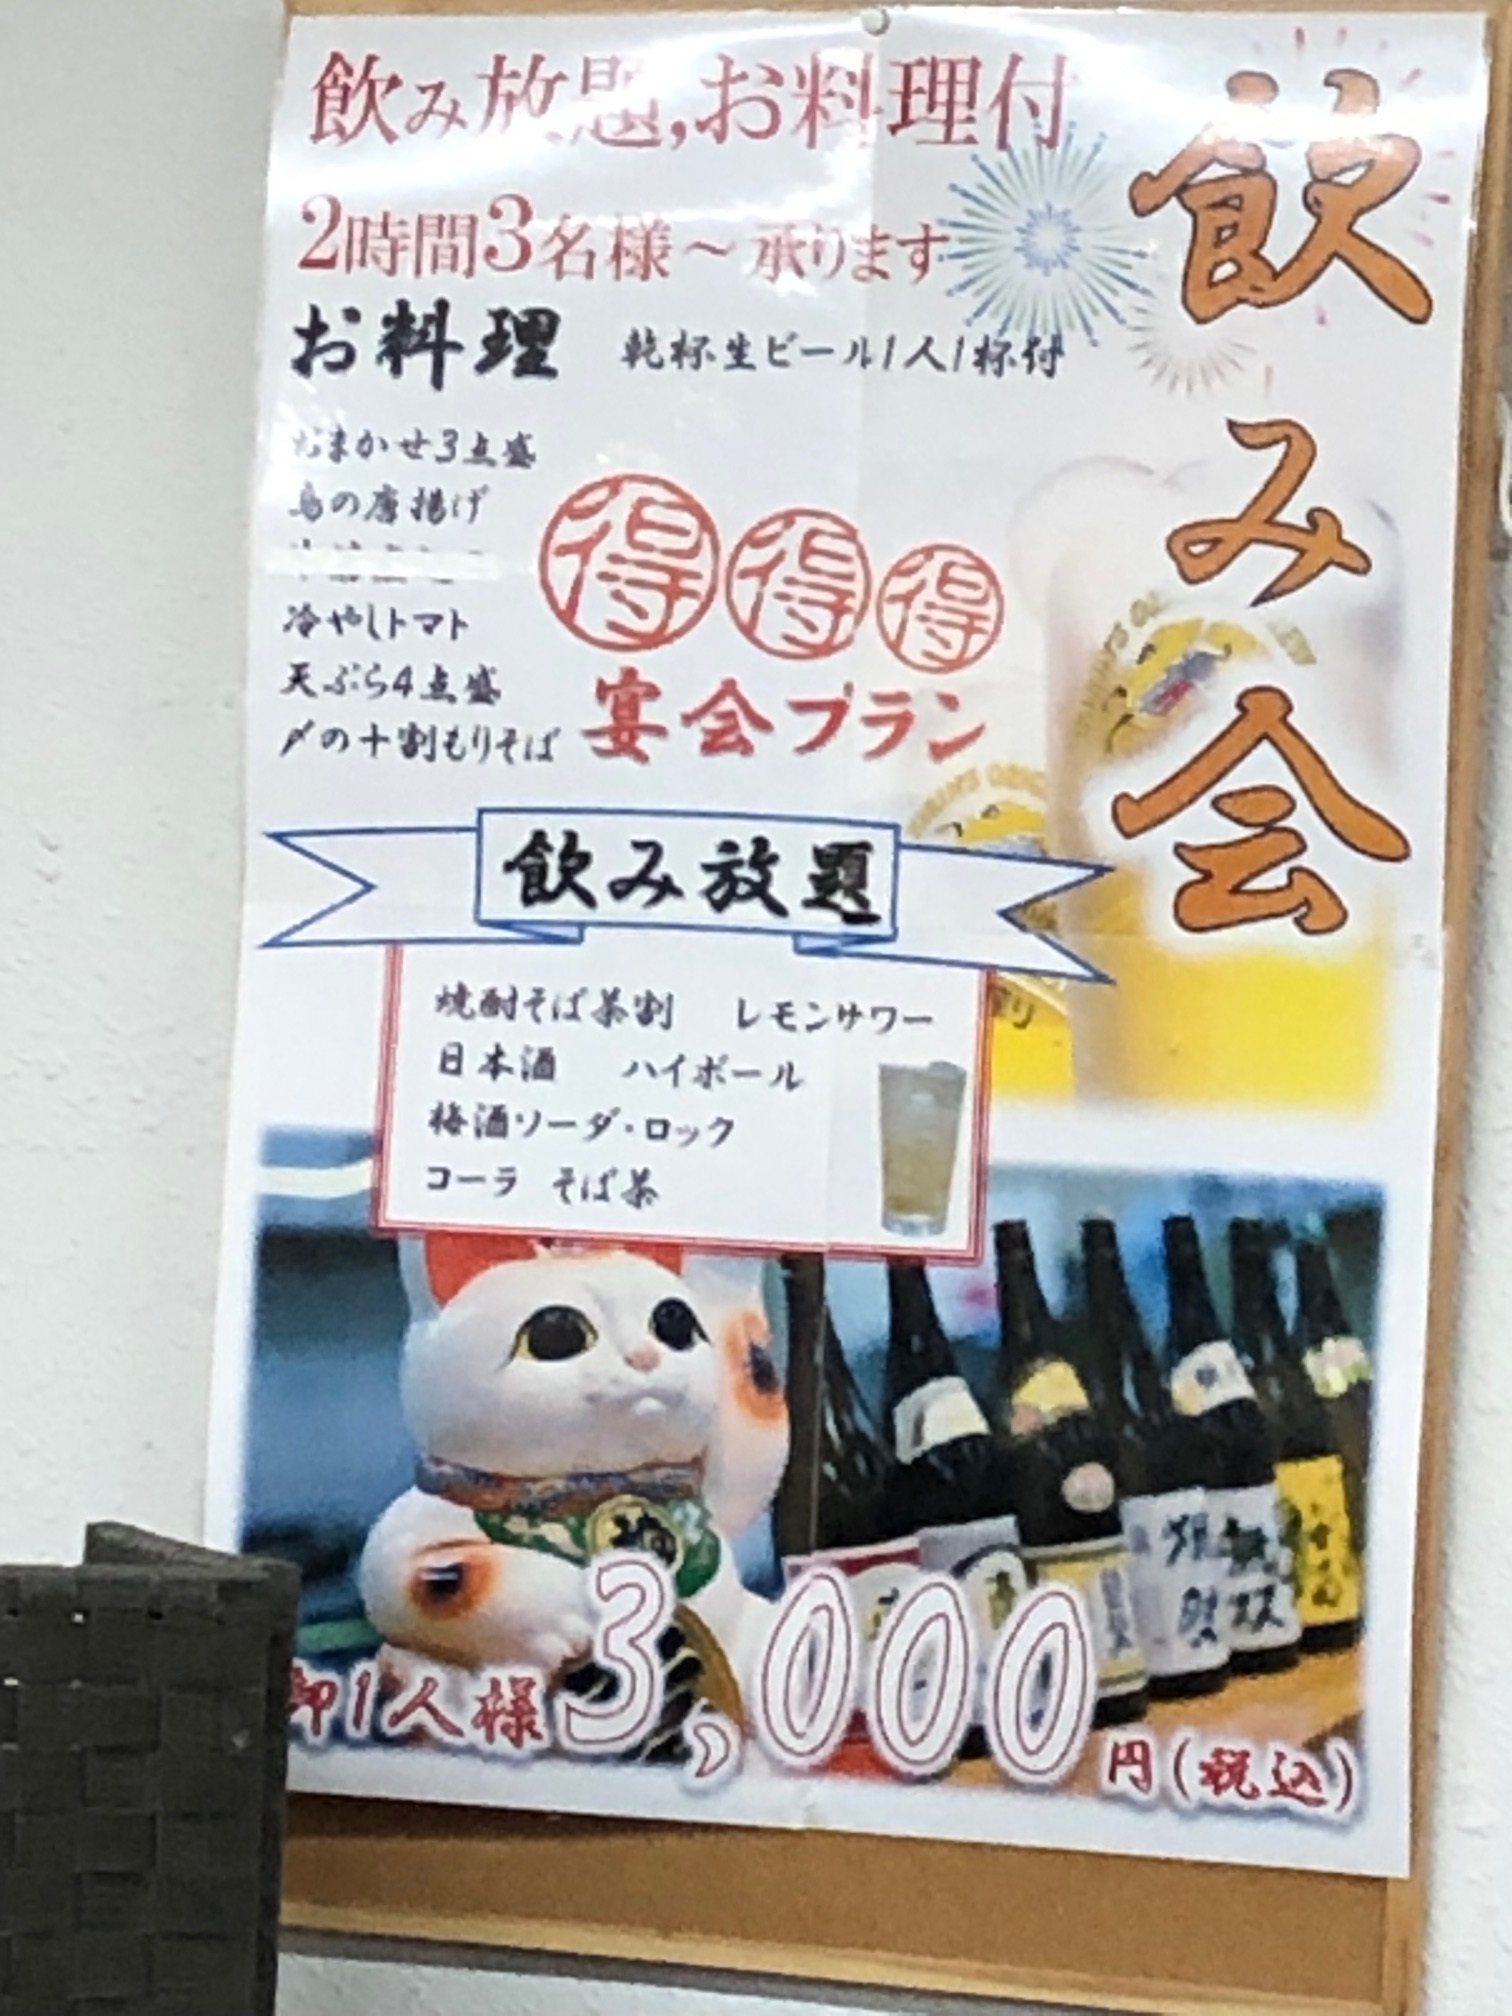 飲み会
飲み放題,お料理付
2時間3名様～承ります
お料理 乾杯生ビール1人1杯付
おまかせ3点盛
鳥の唐揚げ
冷やしトマト
天ぷら4点盛
〆の十割もりそば
得 得 得
宴会プラン
飲み放題
焼酎そば茶割 レモンサワー
日本酒 ハイボール
梅酒ソーダ・ロック
コーラ そば茶
御1人様3,000円(税込)